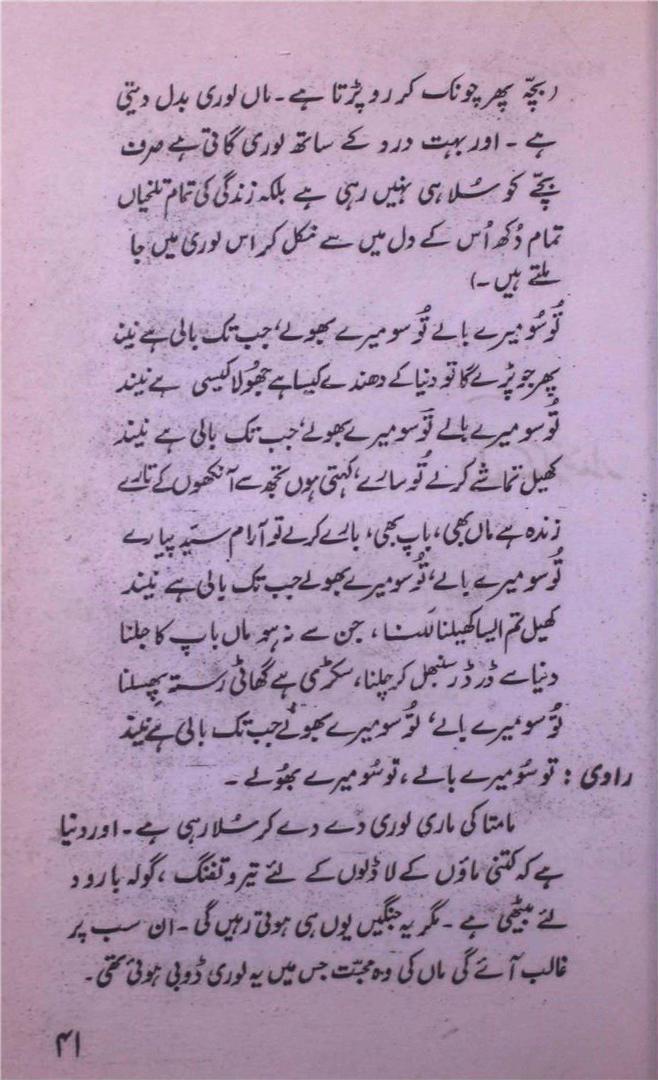 (بچّہ پھر چونک کر رو پڑتا ہے۔ ماں لوری بدل دیتی
ہے ۔ اور بہت درد کے ساتھ لوری گاتی ہے صرف
بچّے کو سُلا ہی نہیں رہی ہے بلکہ زندگی کی تمام تلخیاں
تمام دُکھ اُس کے دل میں سے نکل کر اس لوری میں جا
ملتے ہیں ۔)
تُو سُو میرے بالے تُو سو میرے بھولے، جب تک بالی ہے نیند
پھر جو پڑے گا تو دنیا کے دھندے کیسا ہے جھُولا کیسی ہے نیند
تُو سو میرے بالے تُو سو میرے بھولے، جب تک بالی ہے نیند
کھیل تماشے کرلے تُو سارے، کہتی ہوں تجھ سے آنکھوں کے تارے
زندہ ہے ماں بھی، باپ بھی، بارے کرلے تو آرام سیّد پیارے
تُو سو میرے بالے، تُو سو میرے بھولے جب تک بالی ہے نیند
کھیل تم ایسا کھیلنا للنا، جن سے نہ ہو ماں باپ کا جلنا
دنیا سے ڈر ڈر سنبھل کر چلنا، سکڑی ہے گھاٹی رستہ پھسلنا
تُو سو میرے بالے، تُو سو میرے بھولے جب تک بالی ہے نیند
راوی : تو سُو میرے بالے، تو سُو میرے بھُولے ۔
مامتا کی ماری لوری دے دے کر سُلا رہی ہے۔ اور دنیا
ہے کہ کتنی ماؤں کے لاڈلوں کے لئے تیر و تفنگ، گولہ بارود
لئے بیٹھی ہے ۔ مگر یہ جنگیں یوں ہی ہوتی رہیں گی ۔ ان سب پر
غالب آئے گی ماں کی وہ محبّت جس میں یہ لوری ڈوبی ہوئی تھی۔
۴۱